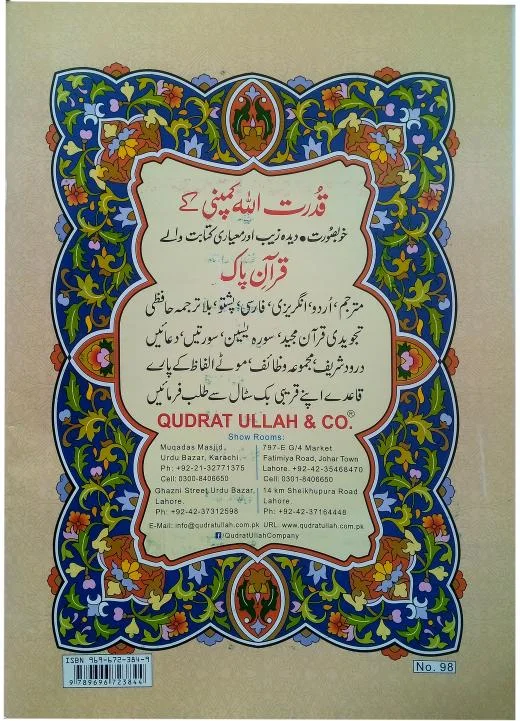 قدرت اللہ کمپنی کے
خوبصورت • دیدہ زیب اور معیاری کتابت والے
قرآن پاک
مترجم، اُردو، انگریزی، فارسی، پشتو، بلا ترجمہ حافظی
تجویدی قرآن مجید، سورہ یٰسین، سورتیں، دعائیں
درود شریف، مجموعہ وظائف، موٹے الفاظ کے پارے
قاعدے اپنے قریبی بک سٹال سے طلب فرمائیں
QUDRAT ULLAH & CO.®
Show Rooms:
Muqadas Masjid,
Urdu Bazar, Karachi.
Ph: +92-21-32771375
Cell: 0300-8406650
Ghazni Street Urdu Bazar,
Lahore.
Ph: +92-42-37312598
797-E G/4 Market
Fatimiya Road, Johar Town
Lahore. +92-42-35468470
Cell: 0301-8406650
14 km Sheikhupura Road
Lahore.
Ph: +92-42-37164448
E-Mail: info@qudratullah.com.pk URL: www.qudratullah.com.pk
f/QudratUllahCompany
ISBN 969-672-384-9
9 789696 723844
No. 98